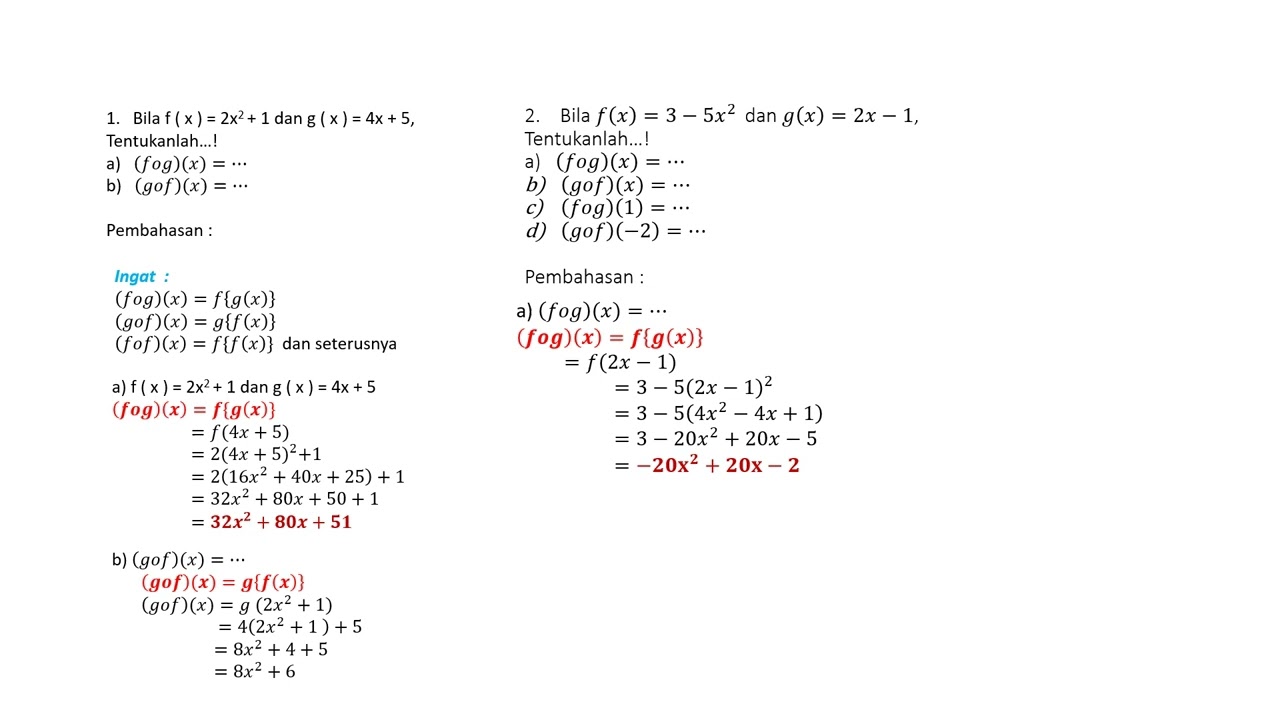 1. Bila f ( x ) = 2x² + 1 dan g ( x ) = 4x + 5,
Tentukanlah...!
a) (fog)(x) = ⋯
b) (gof)(x) = ⋯
Pembahasan :
Ingat :
(fog)(x) = f{g(x)}
(gof)(x) = g{f(x)}
(fof)(x) = f{f(x)} dan seterusnya
a) f ( x ) = 2x² + 1 dan g ( x ) = 4x + 5
(fog)(x) = f{g(x)}
= f(4x + 5)
= 2(4x + 5)²+1
= 2(16x² + 40x + 25) + 1
= 32x² + 80x + 50 + 1
= 32x² + 80x + 51
b) (gof)(x) = ⋯
(gof)(x) = g{f(x)}
(gof)(x) = g (2x² + 1)
= 4(2x² + 1 ) + 5
= 8x² + 4 + 5
= 8x² + 6
2. Bila f(x) = 3 − 5x² dan g(x) = 2x − 1,
Tentukanlah...!
a) (fog)(x) = ⋯
b) (gof)(x) = ⋯
c) (fog)(1) = ⋯
d) (gof)(−2) = ⋯
Pembahasan :
a) (fog)(x) = ⋯
(fog)(x) = f{g(x)}
= f(2x − 1)
= 3 − 5(2x − 1)²
= 3 − 5(4x² − 4x + 1)
= 3 − 20x² + 20x − 5
= −20x² + 20x − 2